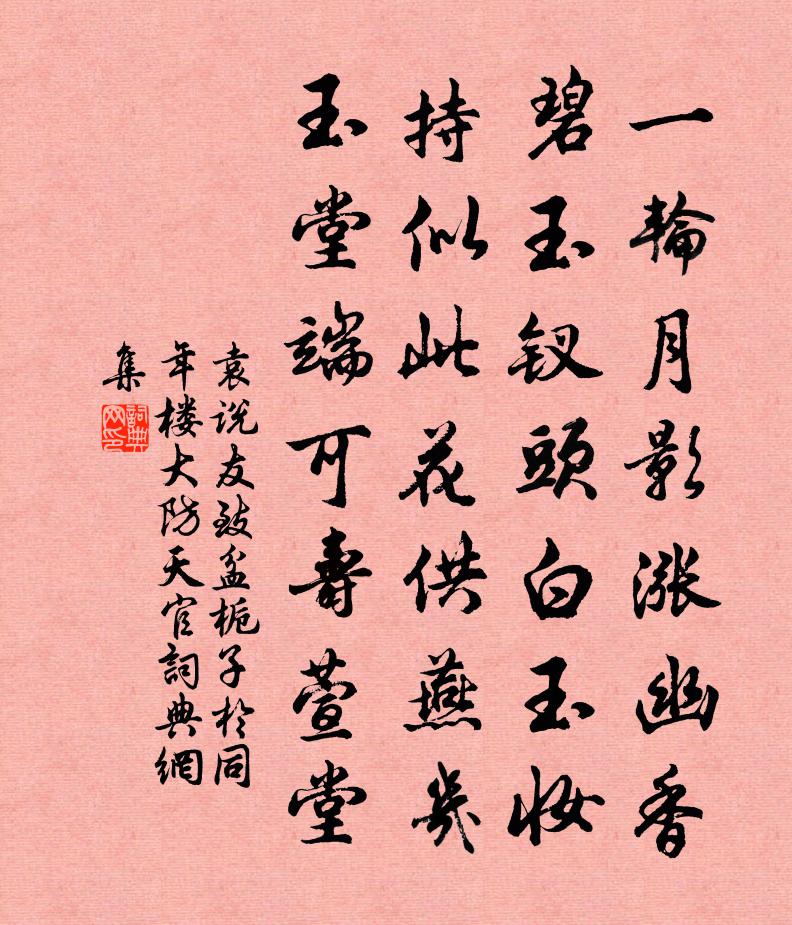 一輪月影漲幽香
碧玉釵頭白玉妝
持似此花供燕幾
玉堂端可壽萱堂
袁說友致盆梔子於同
年楼大防天官詞典網
集
詞典網印